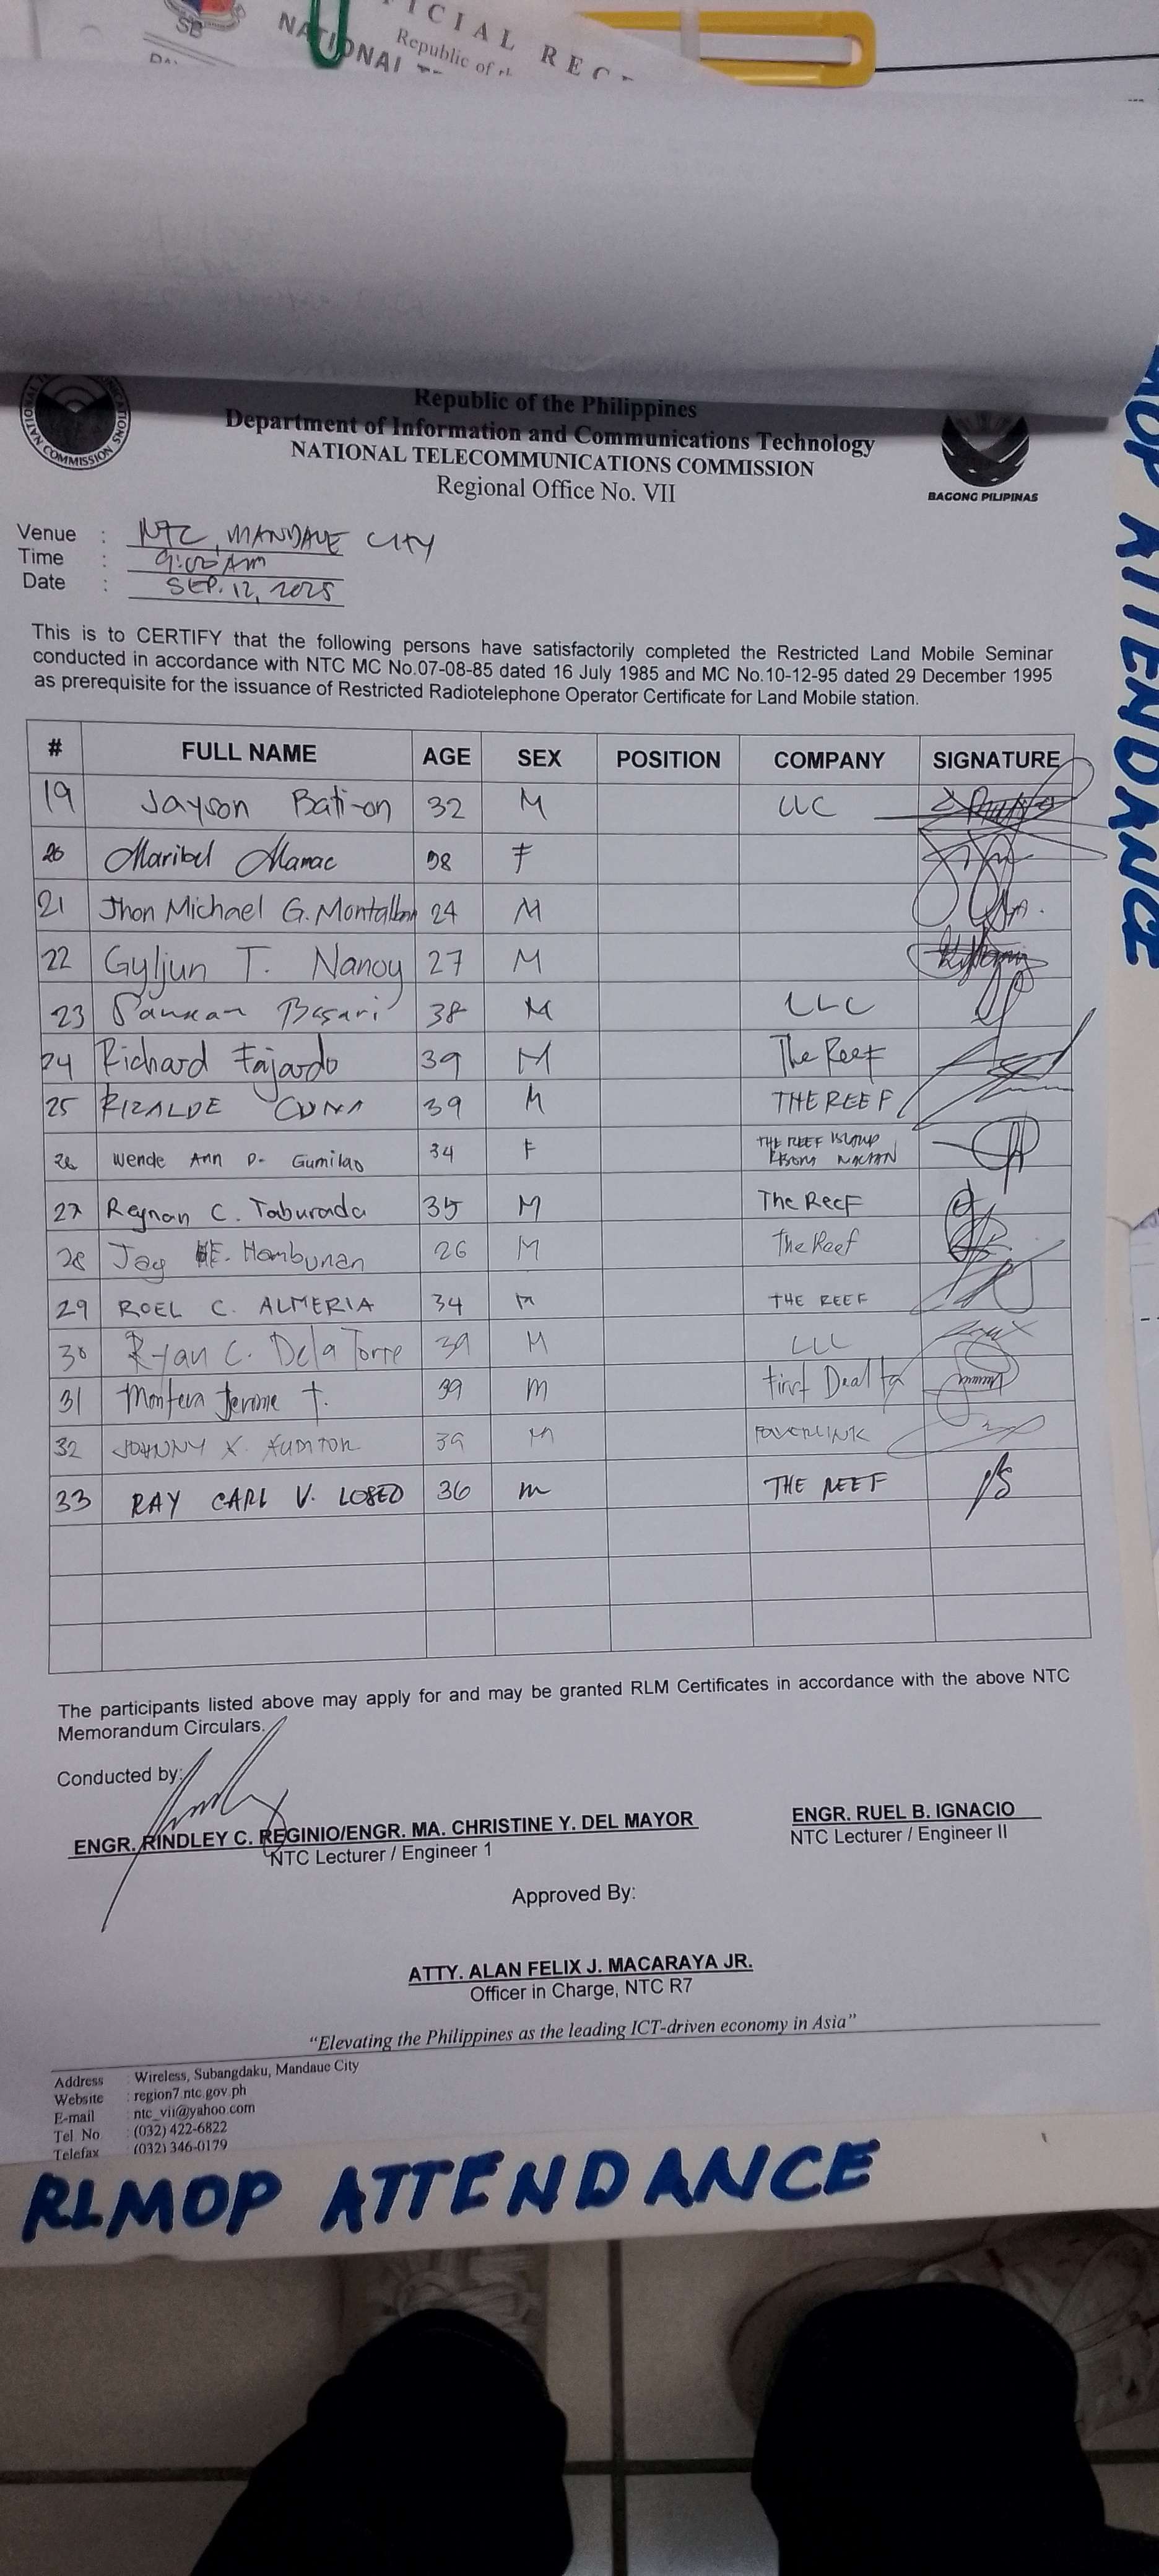 SB
ICIAL REC
Republic of th
NATIONAL
COMMISSION
Republic of the Philippines
Department of Information and Communications Technology
NATIONAL TELECOMMUNICATIONS COMMISSION
Regional Office No. VII
BAGONG PILIPINAS
Venue : NTC, MANDAUE CITY
Time : 9:00 AM
Date : SEP. 12, 2025
This is to CERTIFY that the following persons have satisfactorily completed the Restricted Land Mobile Seminar
conducted in accordance with NTC MC No.07-08-85 dated 16 July 1985 and MC No.10-12-95 dated 29 December 1995
as prerequisite for the issuance of Restricted Radiotelephone Operator Certificate for Land Mobile station.
# FULL NAME AGE SEX POSITION COMPANY SIGNATURE
19 Jayson Bati-on 32 M
20 Maribel Manac F
21 Jhon Michael G. Montalban 24 M
22 Gyljun T. Nanoy 27 M
23 38 M LLC
24 Richard Fajardo 39 M The Reef
25 RIZALDE CUNA 39 M THE REEF
26 Wende Ann D. Gumilao 34 F THE REEF ISLAND
27 Reynan C. Taburada 35 M The Reef
28 Jay E. Hambunan 26 M The Reef
29 ROEL C. ALMERIA 34 M THE REEF
30 Ryan C. Dela Torre 39 M
31 Jerome T. 39 M First Deal
32 JOHNNY X. 39 M
33 RAY CARL V. LOSED 36 M THE REEF
The participants listed above may apply for and may be granted RLM Certificates in accordance with the above NTC
Memorandum Circulars.
Conducted by:
ENGR. RINDLEY C. REGINIO/ENGR. MA. CHRISTINE Y. DEL MAYOR
NTC Lecturer / Engineer 1
ENGR. RUEL B. IGNACIO
NTC Lecturer / Engineer II
Approved By:
ATTY. ALAN FELIX J. MACARAYA JR.
Officer in Charge, NTC R7
“Elevating the Philippines as the leading ICT-driven economy in Asia”
Address : Wireless, Subangdaku, Mandaue City
Website : region7.ntc.gov.ph
E-mail : ntc_vii@yahoo.com
Tel No : (032) 422-6822
Telefax (032) 346-0179
RLMOP ATTENDANCE
MOP ATTENDANCE